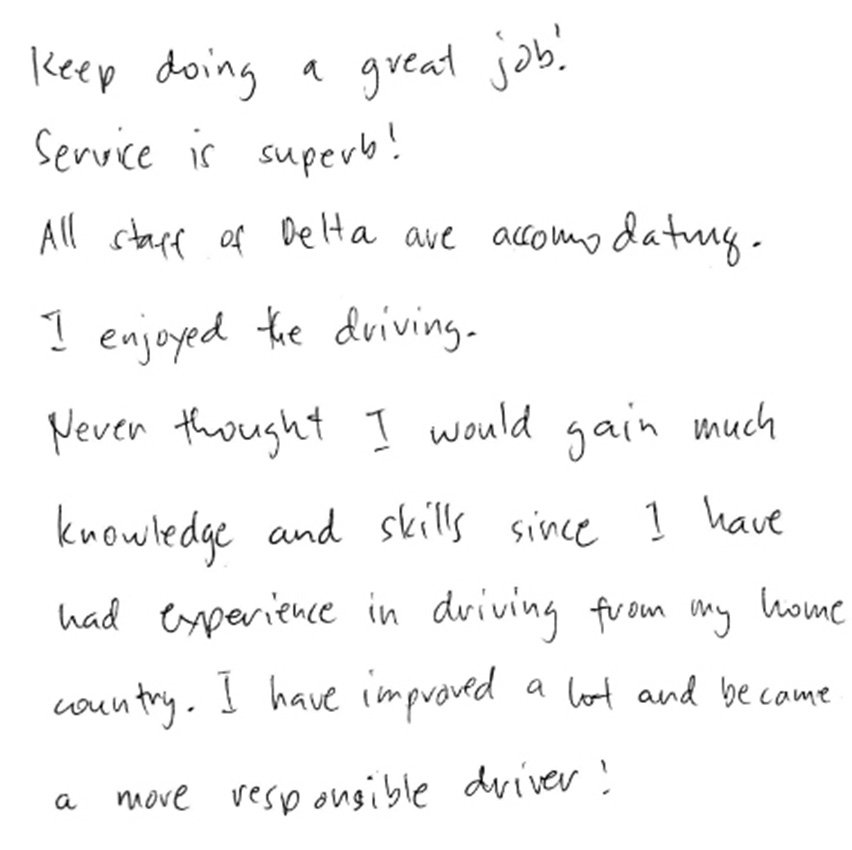 Keep doing a great job!
Service is superb!
All staff of Delta are accomodating.
I enjoyed the driving.
Never thought I would gain much
knowledge and skills since I have
had experience in driving from my home
country. I have improved a lot and became
a more responsible driver!